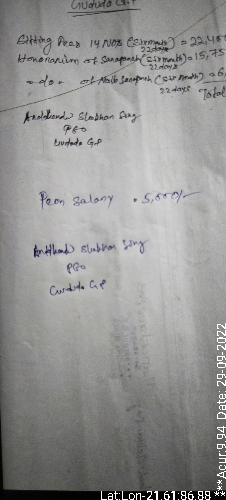 Gudida G.P
Sitting Fees 14 Nos (Six month) = 22,4
22 days
Honorarium of Sarapanch (Six month) = 15,75
22 days
- do - of Naib Sarapanch (Six month) = 6,
22 days
Total
Shabhan Sing
PEO
Gudida G.P
Peon Salary = 5,000/-
Shabhan Sing
PEO
Gudida G.P
Lat:Lon-21.61:86.98 ***Acur:9.94 Date: 29-09-2022